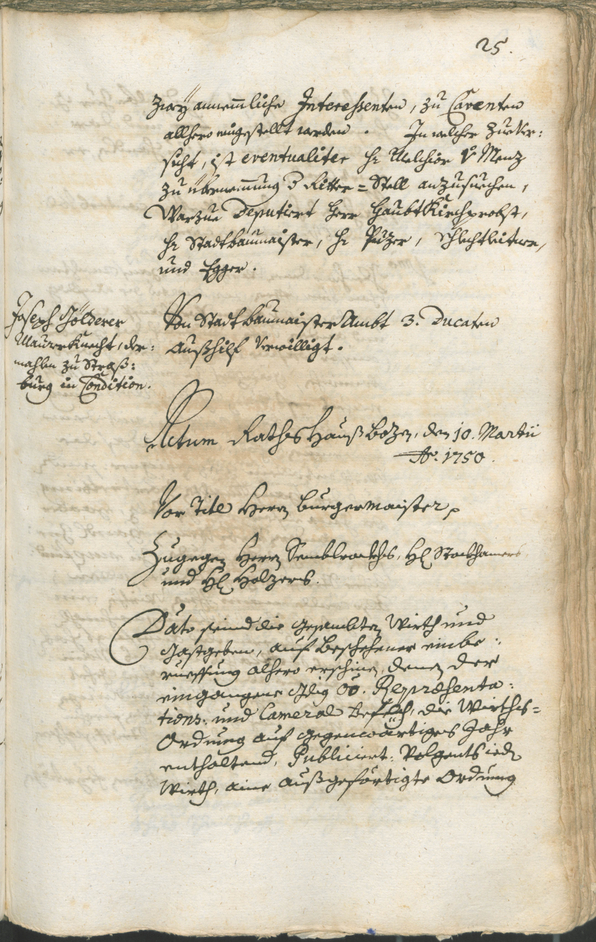 25.
zway annemliche Interessenten, zu Caventen
allhero eingestellt werden. In welcher Zuver:
sicht, ist eventualiter H: Melchior v: Menz
zu übernemmung 3 Ritter=Stell anzusuechen,
Warzue Deputiert Herr Haubt Kirchprobst,
H: Stadtbaumaister, H: Puzer,
und Egger.
Joseph
Maurerknecht, der:
mahlen zu Straß:
burg in Condition.
Von Stadtbaumaister Ambt 3. Ducaten
Außhilf verwilligt.
Actum Raths Hauß Bozen, den 10. Martii
Ao. 1750.
Vor Titl Herrn Burgermaister,
Zugegen Herrn
und H: Holzers.
Dato seind die gesambte Wirth und
Gastgeben, auf beschehener einbe:
rueffung alhero erschinen, denen der
eingangene Gdig OÖ. Repraesenta:
tions: und Cameral Befelch, die Wirths=
Ordnung auf gegenwärtiges Jahr
enthaltend, Publiciert: Volgents ieden
Wirth, aine außgefertigte Ordnung